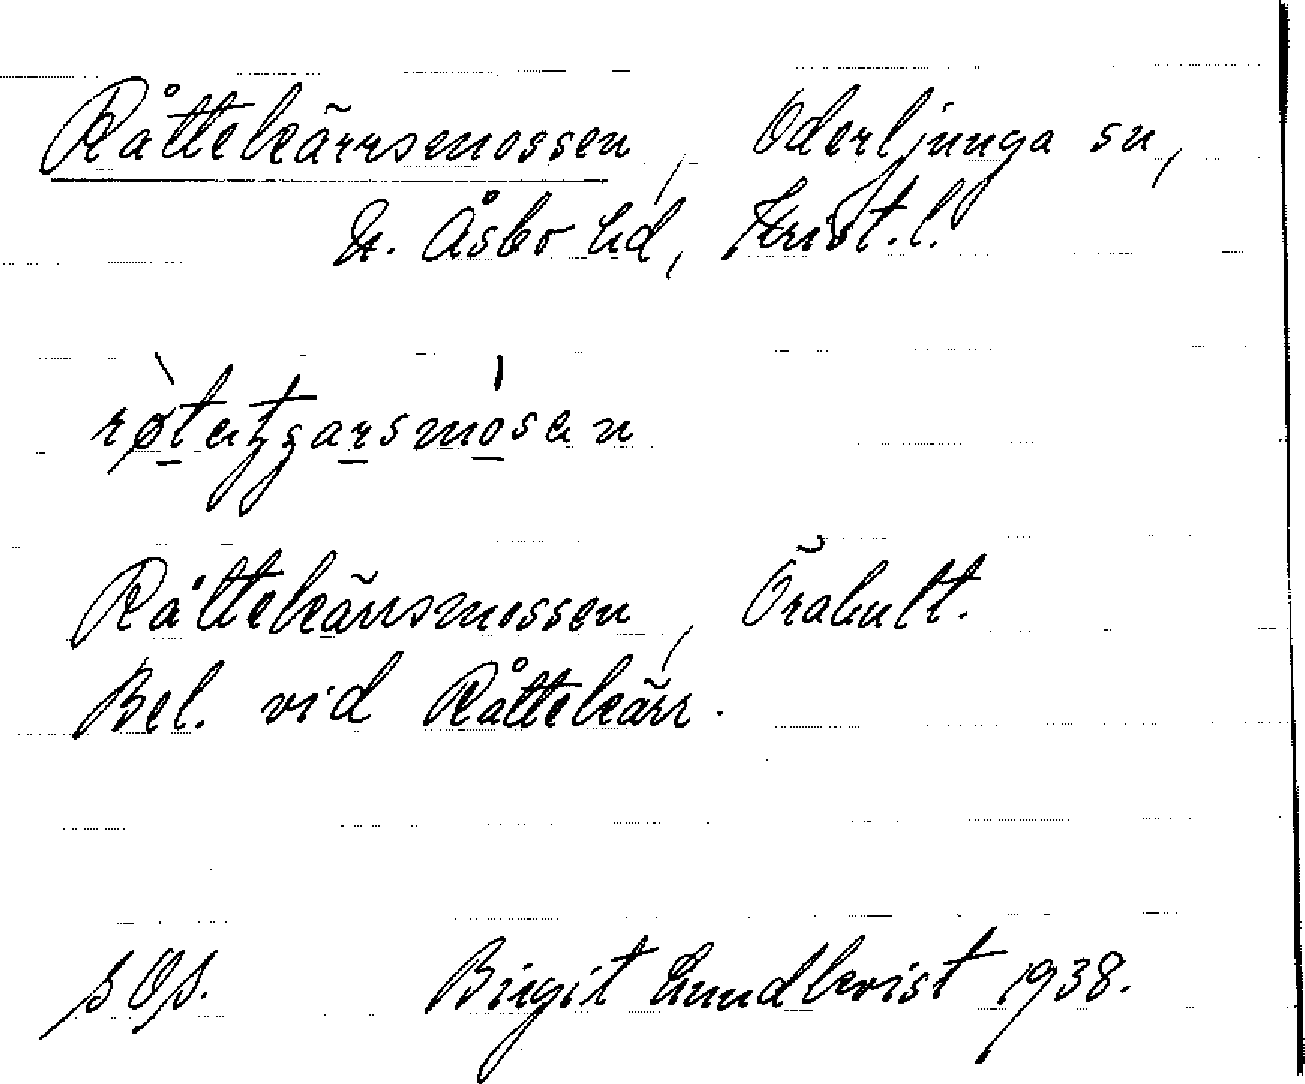 Råttekärrsmossen, Oderljunga sn,
N. Åsbo hd, Krist.l.
Råttekärrsmossen, Örahult.
Bel. vid Råttekärr.
Birgit Lundkvist 1938.